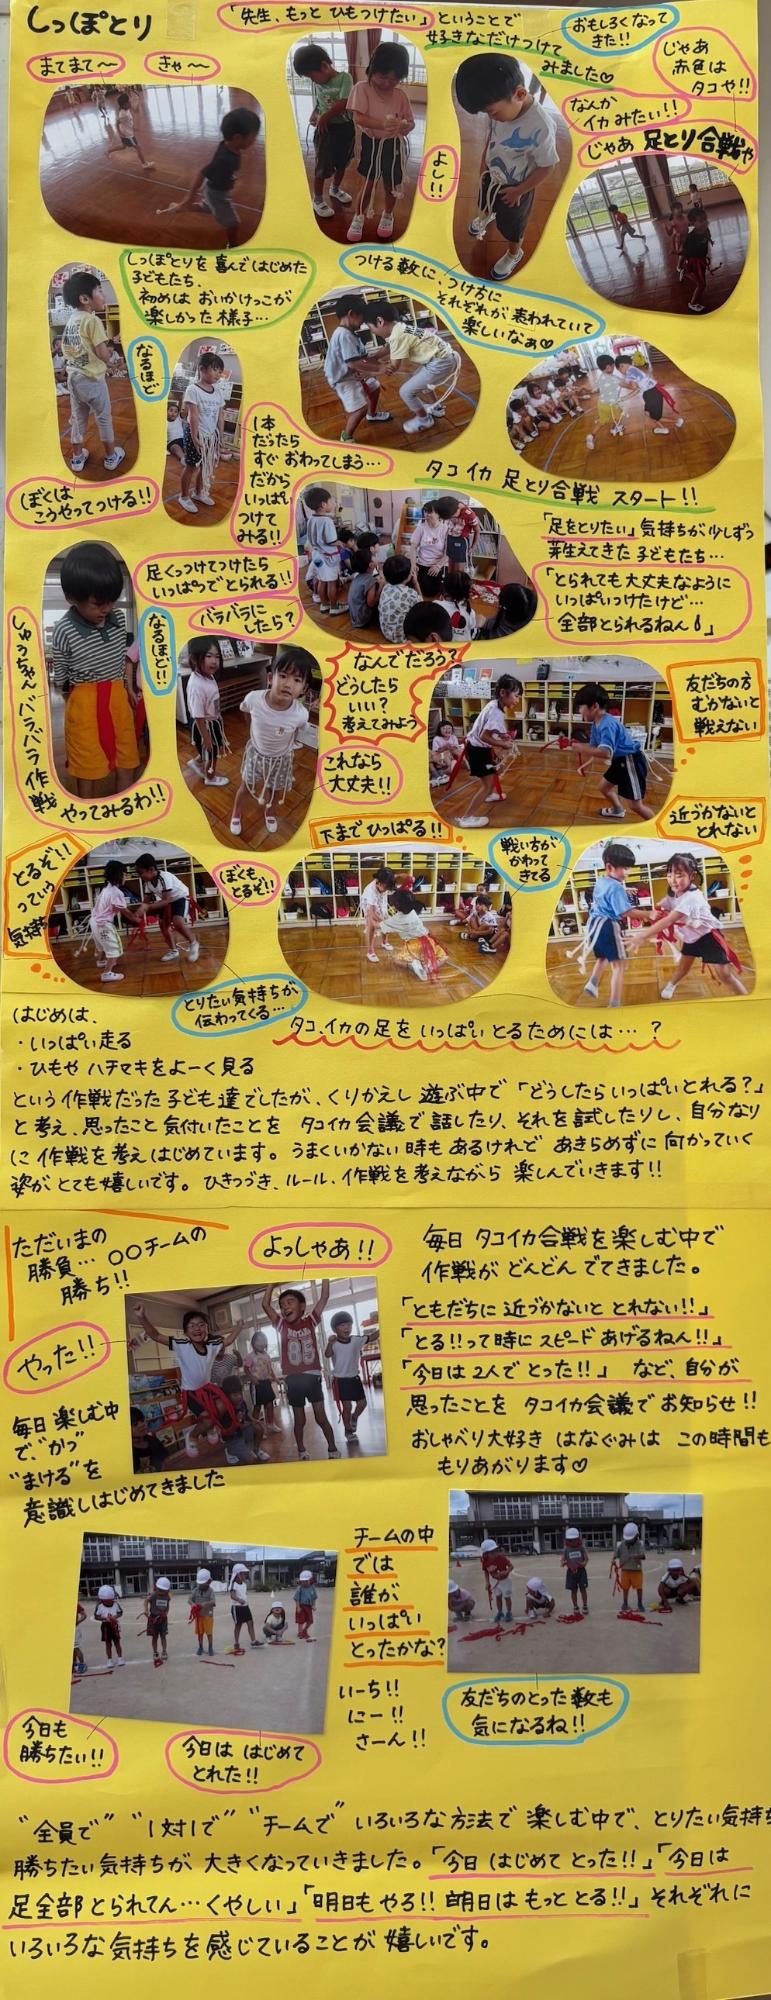 しっぽとり
まてまて〜
きゃ〜
「先生、もっと ひもつけたい」ということで
好きなだけつけて
みました♡
おもしろくなって
きた!!
じゃあ
赤色は
タコや!!
なんか
イカみたい!!
じゃあ 足とり合戦や
よし!!
しっぽとりを 喜んではじめた
子どもたち、
初めは おいかけっこが
楽しかった様子…
つける数に、つけ方に
それぞれが 表われていて
楽しいなぁ♡
なるほど
ぼくは
こうやってつける!!
1本
だったら
すぐ おわってしまう…
だから
いっぱい
つけて
みる!!
タコイカ 足とり合戦 スタート!!
「足をとりたい」気持ちが少しずつ
芽生えてきた 子どもたち…
「とられても大丈夫なように
いっぱいつけたけど…
全部とられるねん」
足くっつけてつけたら
いっぱつでとられる!!
バラバラに
したら?
なるほど!!
しゅうちゃん バラバラ作戦
やってみるわ!!
なんでだろう?
どうしたら
いい?
考えてみよう
これなら
大丈夫!!
友だちの方
むかないと
戦えない
近づかないと
とれない
下までひっぱる!!
戦い方が
かわって
きてる
とるぞ!!
っていう
気持ち
ぼくも
とるぞ!!
とりたい気持ちが
伝わってくる…
はじめは、
・いっぱい走る
・ひもや ハチマキを よーく見る
タコ、イカの足を いっぱい とるためには…?
という作戦だった 子ども達でしたが、くりかえし 遊ぶ中で 「どうしたら いっぱいとれる?」
と考え、思ったこと 気付いたことを タコイカ会議で 話したり、それを試したりし、自分なり
に 作戦を考えはじめています。うまくいかない時も あるけれど あきらめずに 向かっていく
姿が とても嬉しいです。ひきつづき、ルール、作戦を考えながら 楽しんでいきます!!
ただいまの
勝負… ○○チームの
勝ち!!
よっしゃあ!!
やった!!
毎日 楽しむ中
で、“かつ”
“まける”を
意識しはじめてきました
毎日 タコイカ合戦を楽しむ中で
作戦が どんどん でてきました。
「ともだちに 近づかないと とれない!!」
「とる!!って時に スピード あげるねん!!」
「今日は 2人で とった!!」 など、自分が
思ったことを タコイカ会議で お知らせ!!
おしゃべり大好き はなぐみは この時間も
もりあがります♡
チームの中
では
誰が
いっぱい
とったかな?
いーち!!
にー!!
さーん!!
友だちのとった数も
気になるね!!
今日も
勝ちたい!!
今日は はじめて
とれた!!
“全員で” “1対1で” “チームで” いろいろな方法で 楽しむ中で、とりたい気持ち
勝ちたい気持ちが 大きくなっていきました。「今日 はじめて とった!!」「今日は
足全部とられてん…くやしい」「明日も やろ!! 明日は もっと とる!!」それぞれに
いろいろな気持ちを感じていることが 嬉しいです。